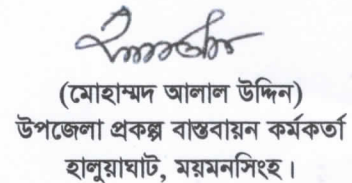 (মোহাম্মদ আলাল উদ্দিন)
উপজেলা প্রকল্প বাস্তবায়ন কর্মকর্তা
হালুয়াঘাট, ময়মনসিংহ।